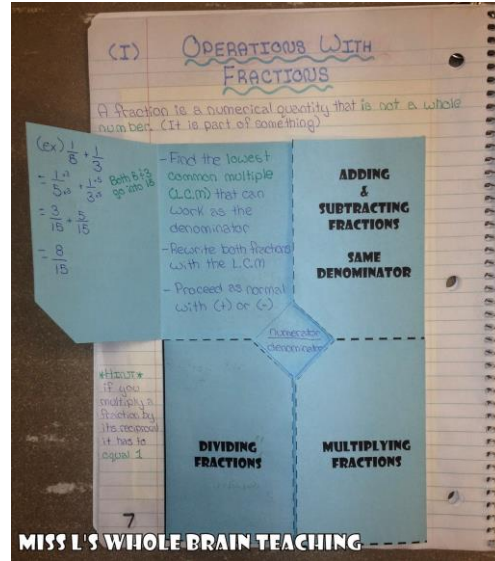 (I) OPERATIONS WITH
FRACTIONS
A fraction is a numerical quantity that is not a whole
number. (It is part of something)
(ex) 1/5 + 1/3
= 1×3/5×3 + 1×5/3×5
Both 5 & 3
go into 15
= 3/15 + 5/15
= 8/15
- Find the lowest
common multiple
(L.C.M) that can
work as the
denominator
- Rewrite both fractions
with the L.C.M
- Proceed as normal
with (+) or (-)
ADDING
&
SUBTRACTING
FRACTIONS
SAME
DENOMINATOR
numerator
denominator
*HINT*
if you
multiply a
fraction by
its reciprocal
it has to
equal 1
DIVIDING
FRACTIONS
MULTIPLYING
FRACTIONS
7
MISS L'S WHOLE BRAIN TEACHING